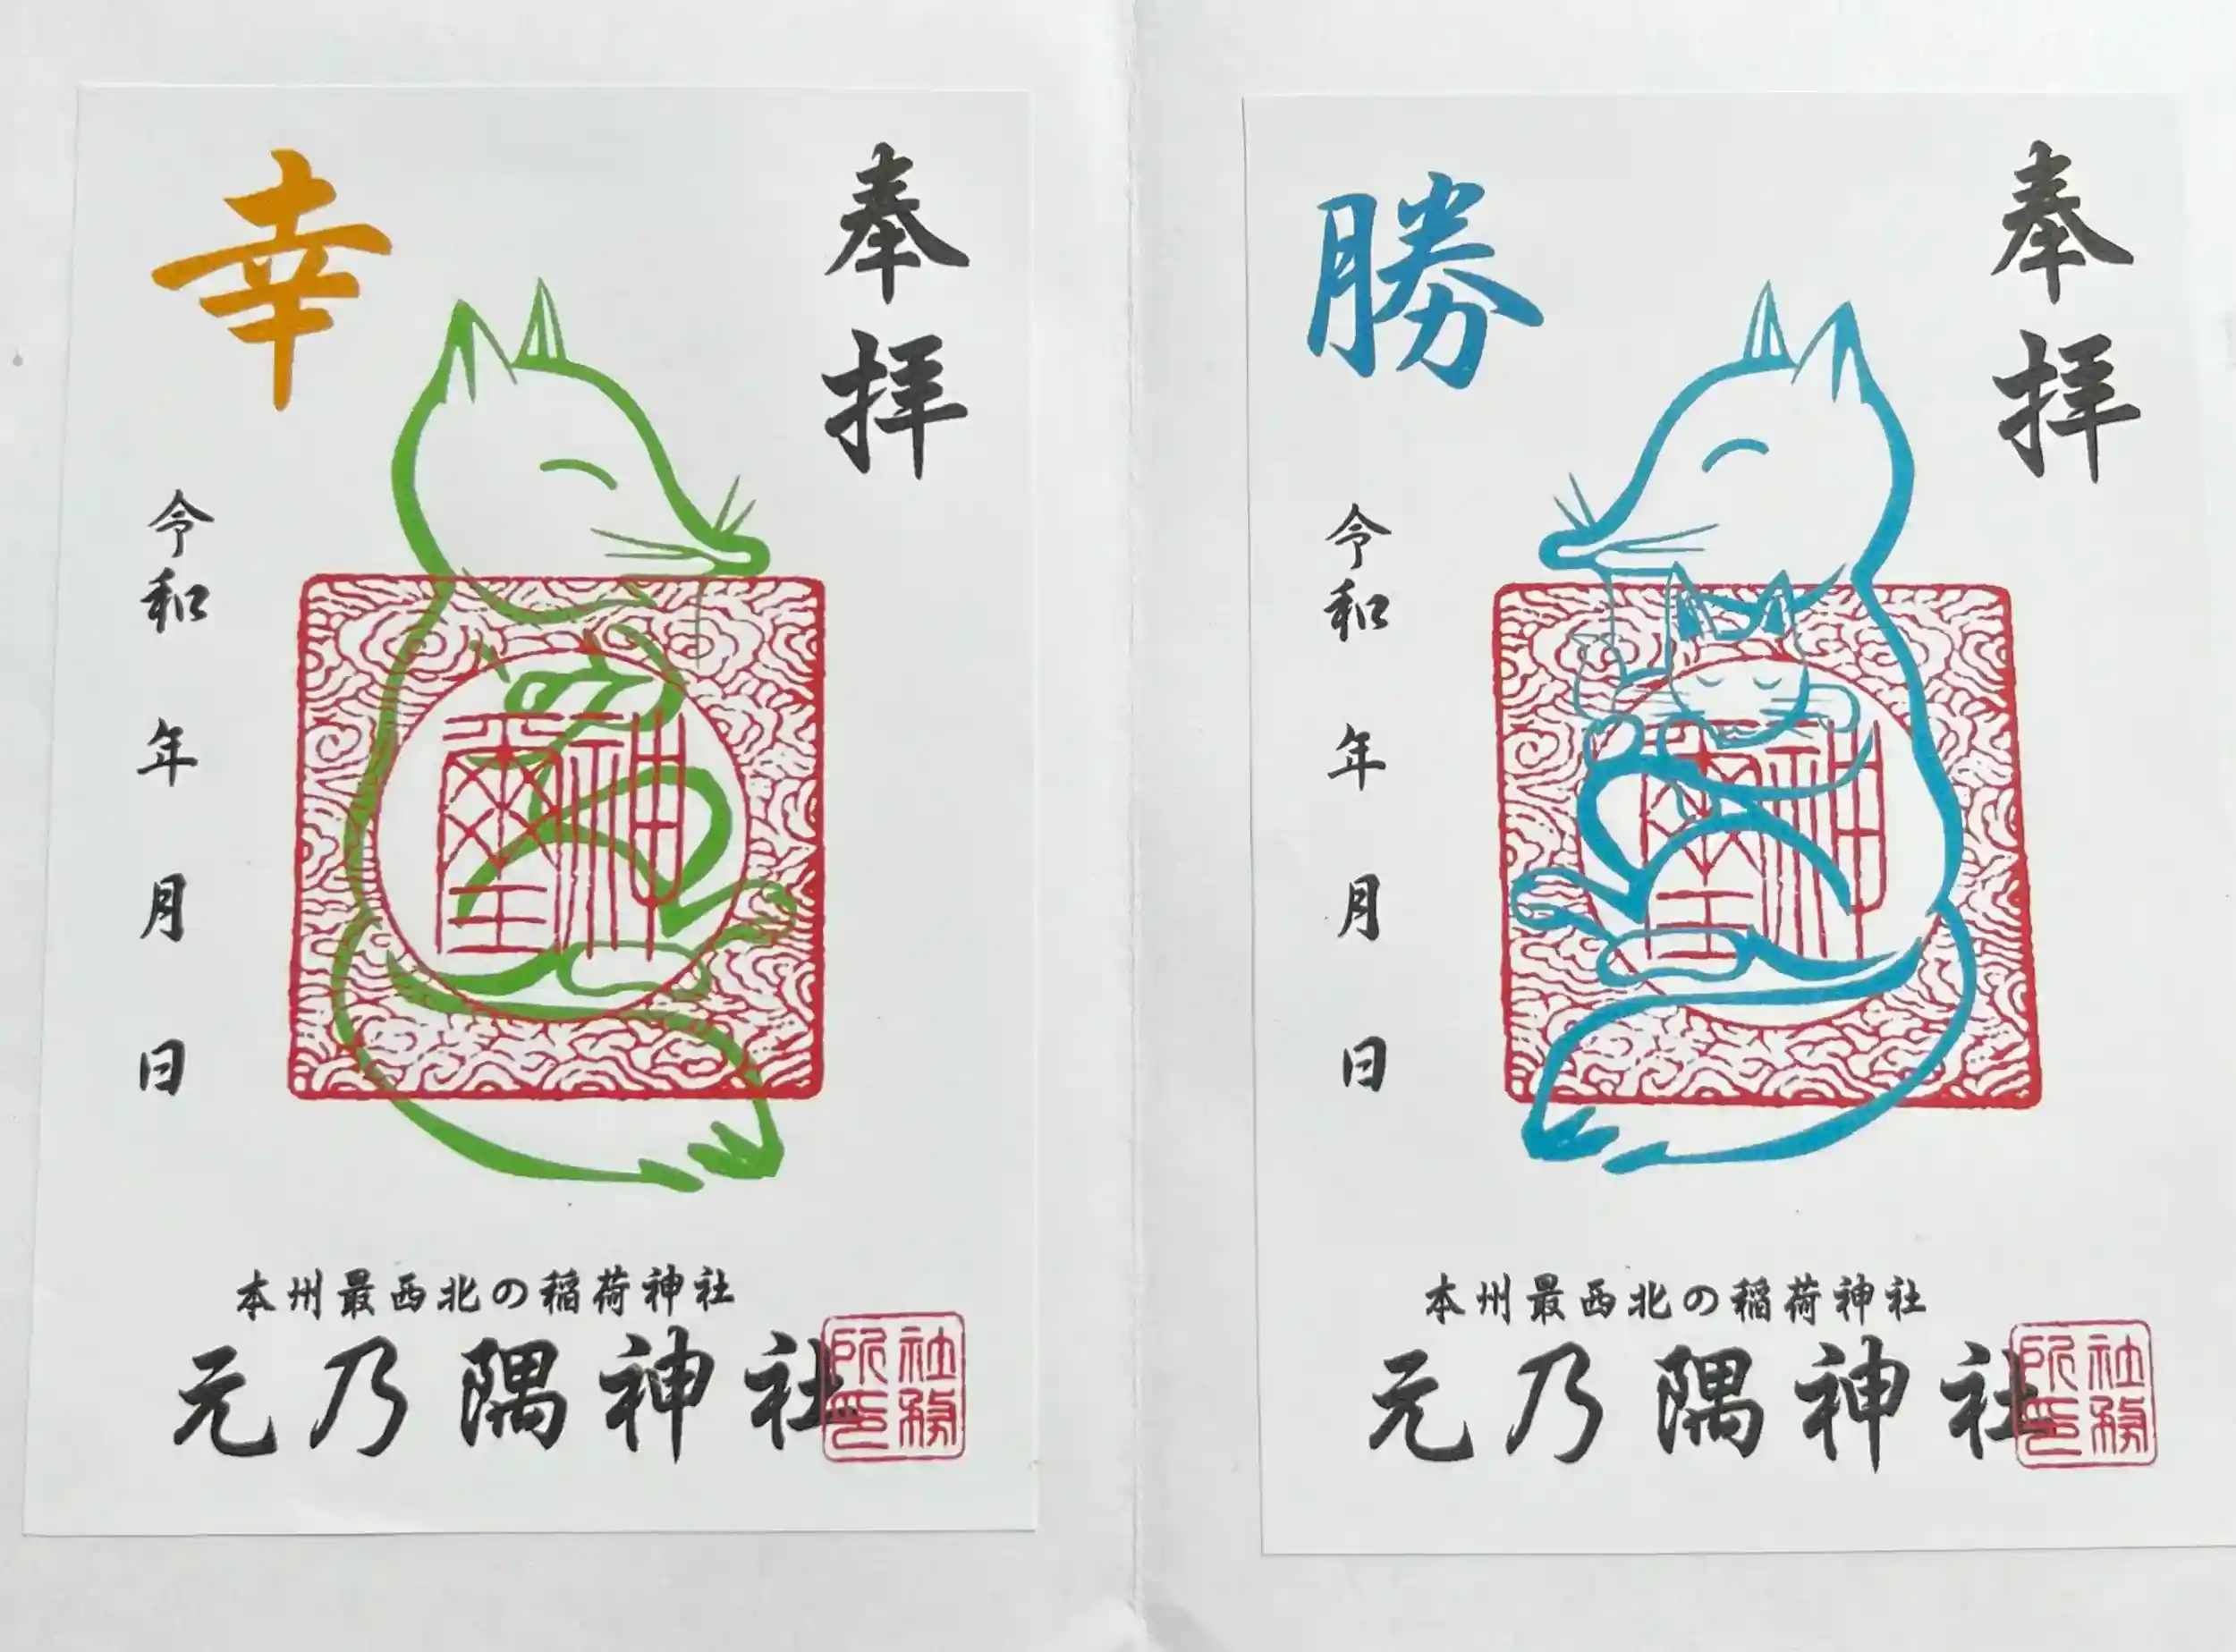 奉拝
幸
令和 年 月 日
神璽
本州最西北の稲荷神社
元乃隅神社
社務所印
奉拝
勝
令和 年 月 日
神璽
本州最西北の稲荷神社
元乃隅神社
社務所印